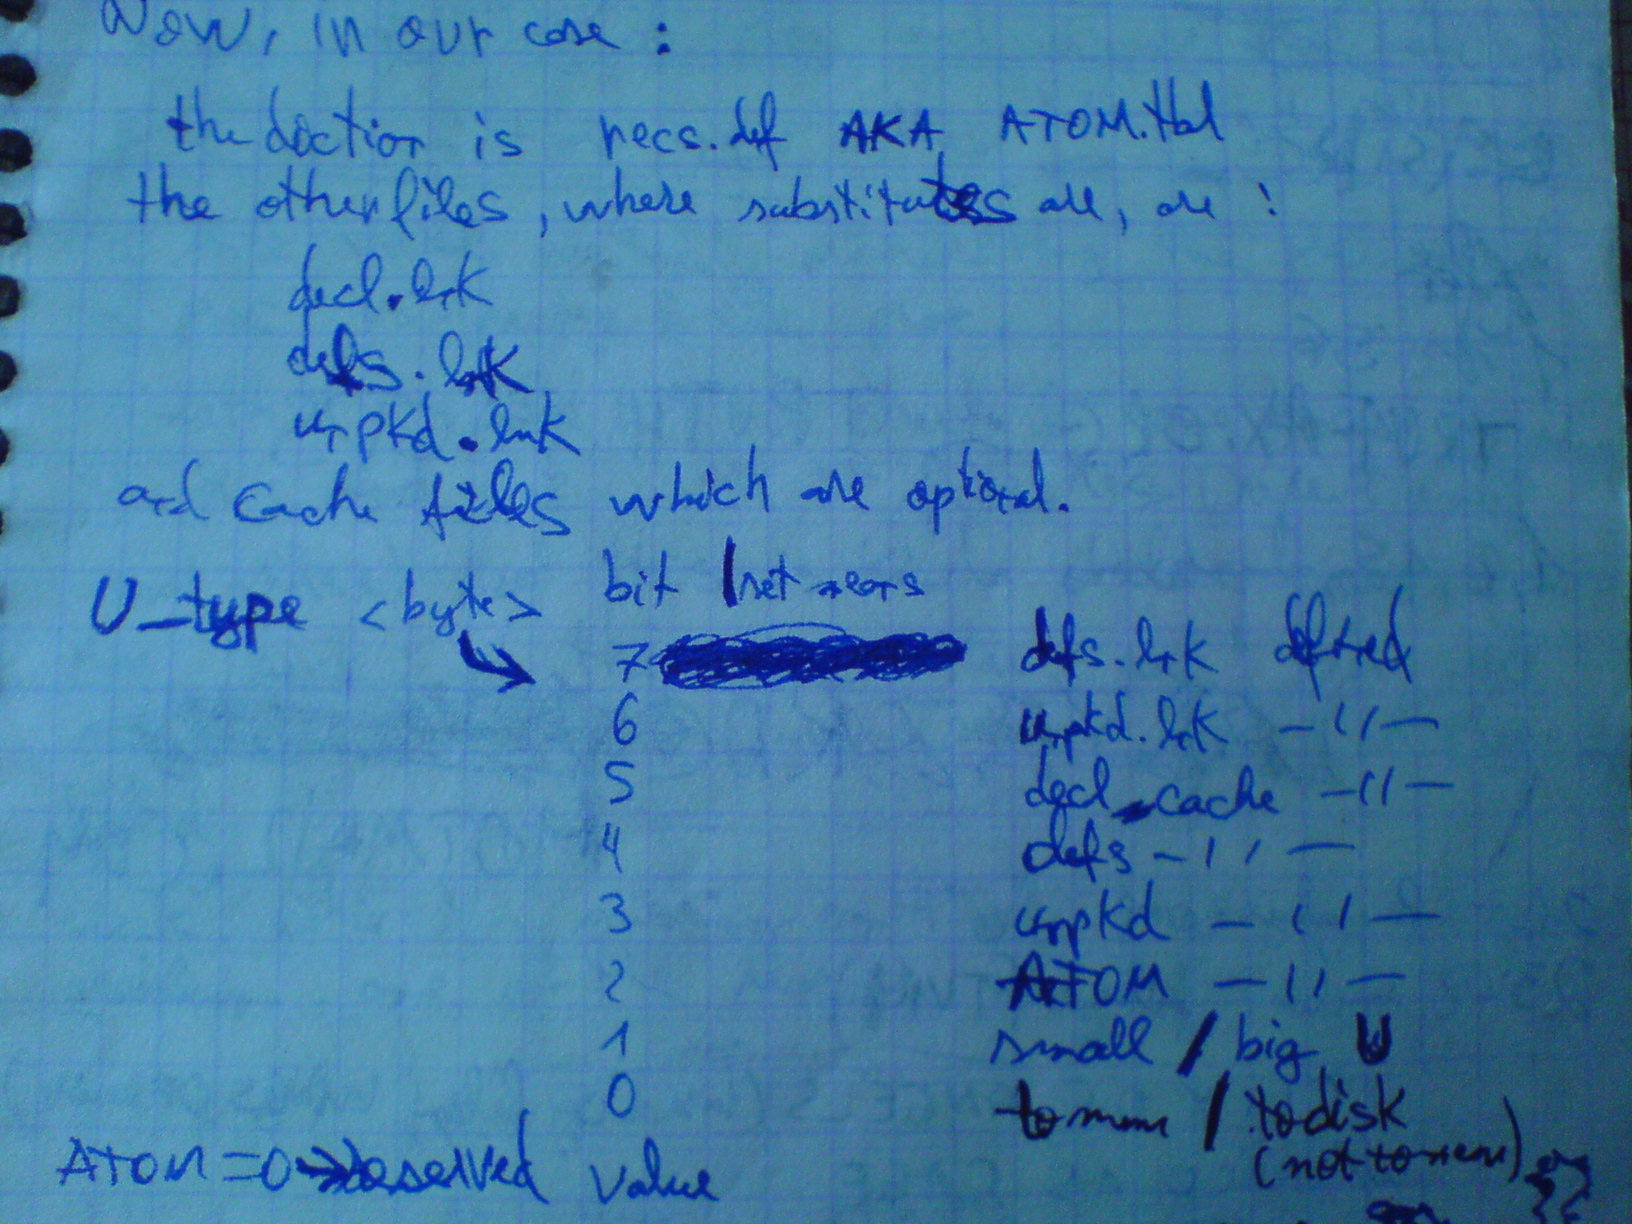 Now, in our case :
the doction is recs.def AKA ATOM.tbl
the other files, where substitutes are, are :
decl.lnk
defs.lnk
unpkd.lnk
and cache files which are optional.
U_type <byte> bit / set means
7 defs.lnk defined
6 unpkd.lnk —〃—
5 decl.cache —〃—
4 defs —〃—
3 unpkd —〃—
2 ATOM —〃—
1 small / big U
0 to mem / to disk
(not to mem)
ATOM = 0 → reserved value